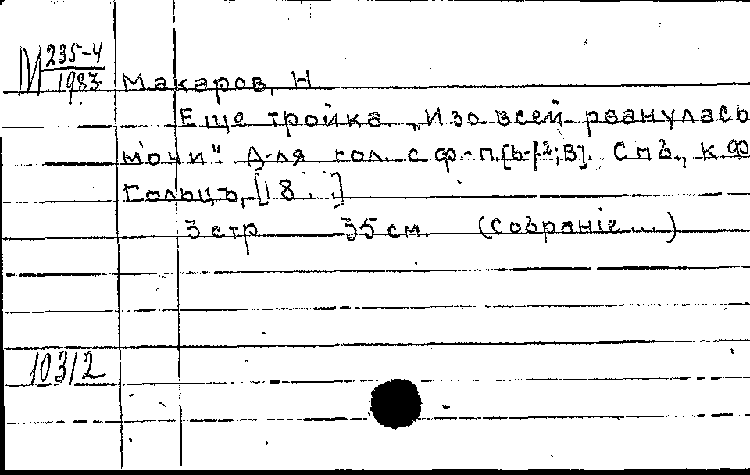 М 235-4
1983
Макаров, Н
Еще тройка. „Изо всей рванулась
мочи" Для гол. с ф.-п. Спб., к. Ф
Гольцъ, [18 . .]
3 стр 35 см. (Собранiе...)
10312